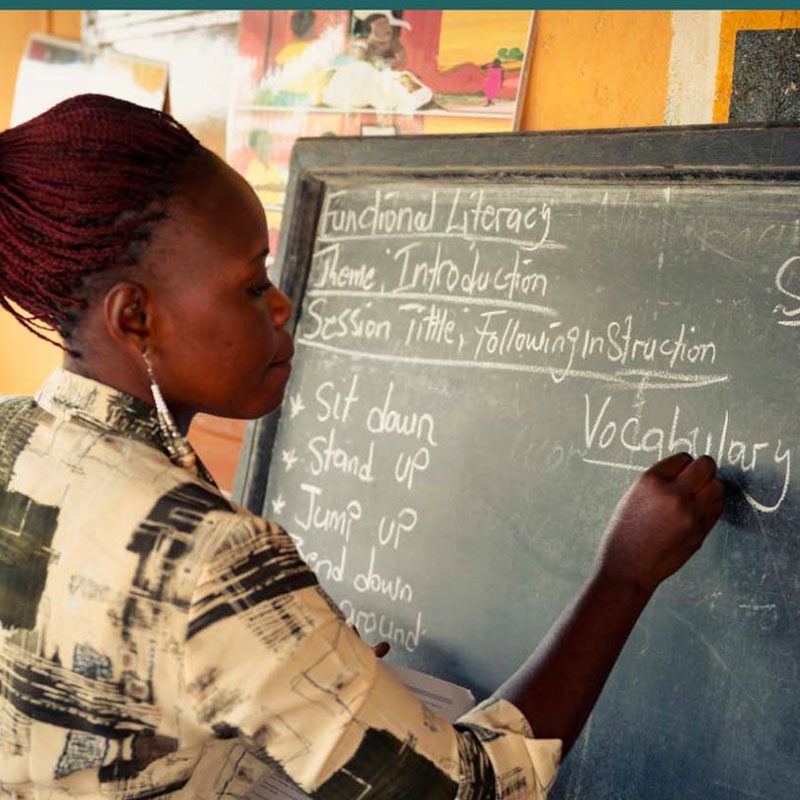 Functional Literacy
Theme; Introduction
Session Tittle; Following inStruction
* Sit down
* Stand up
* Jump up
Bend down
around
Vocabulary
S